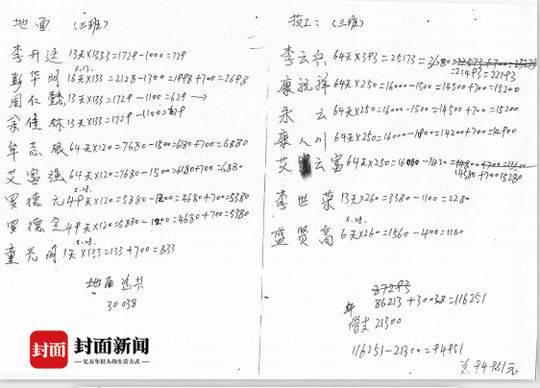 地面 (三班)
李升廷 13天X133=1729-1000=729
5.13.
彭华明 16天X133=2128-1300=1998+700=2698
周仁 13天X133=1729-1100=629 →
余佳林 13天X133=1729-1100=629
牟志根 64天X120=7680-1500=6180+700=6880
艾富强 64天X120=7680-1500=6180+700=6880
5.28.
罗德元 49天X120=5880-1200=4680+700=5380
罗德全 49天X120=5880-1200=4680+700=5380
5.28.
童光明 1天X133=133+700=833
地面总共
30038
技工: (三班)
李云 64天X393=25173-3680=22573+700=23273
=21493=22193
康祝祥 64天X250=16000-1500=14500+700=15200
永云 64天X250=16000-1500=14500+700=15200
康人川 64天X250=16000-1800=14200+700=14900
艾云富 64天X250=16000-1420=14800+700=
14580+700=15280
李世荣 13天X260=3380-1100=2280
5.28.
盛贤高 6天X260=1560-400=1160
87293
86213+30038=116251
借支 21300
116251-21300=94951
总94951元
封面
封面新闻
亿万年轻人的生活方式